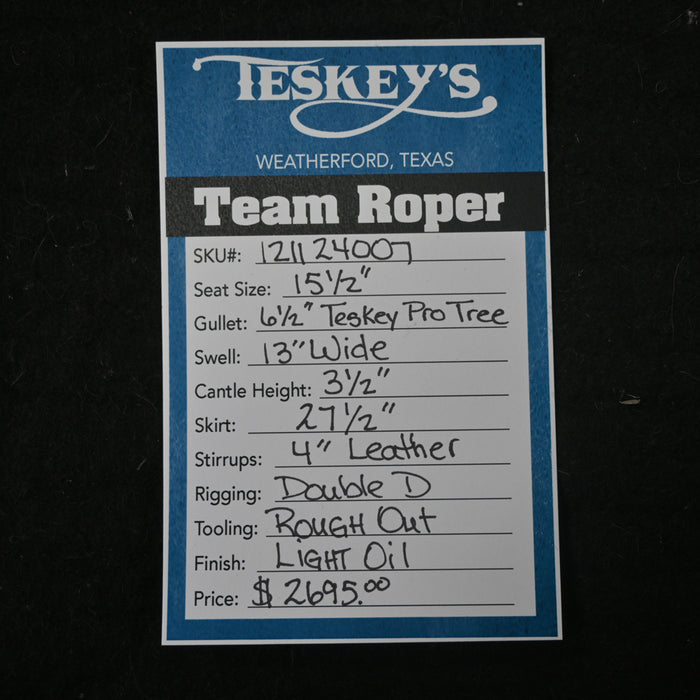 TESKEY'S
WEATHERFORD, TEXAS
Team Roper
SKU#: 121124007
Seat Size: 15 1/2"
Gullet: 6 1/2" Teskey Pro Tree
Swell: 13" Wide
Cantle Height: 3 1/2"
Skirt: 27 1/2"
Stirrups: 4" Leather
Rigging: Double D
Tooling: ROUGH Out
Finish: LIGHT Oil
Price: $ 2695.00